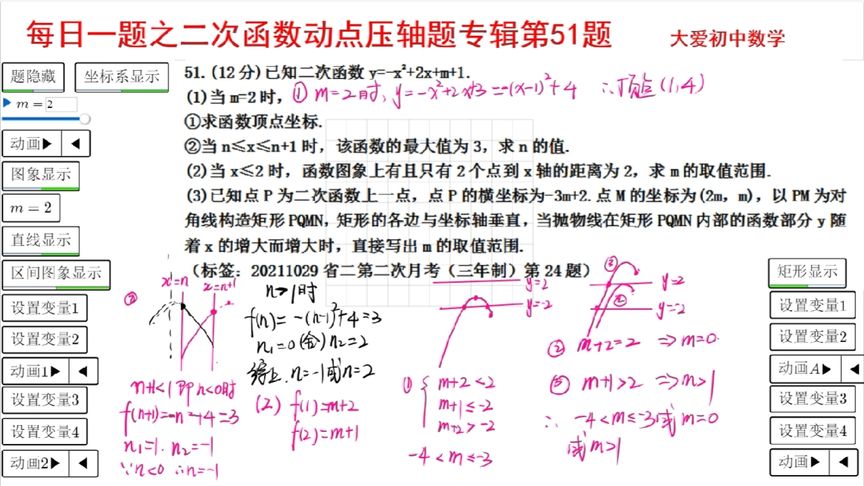 每日一题之二次函数动点压轴题专辑第51题
大爱初中数学
题隐藏
坐标系显示
m = 2
动画▶ ◀
图象显示
m = 2
直线显示
区间图象显示
设置变量1
设置变量2
动画1▶ ◀
设置变量3
设置变量4
动画2▶ ◀
51.(12分)已知二次函数 y=-x²+2x+m+1.
(1)当 m=2 时,
① m=2时, y=-x²+2x+3=-(x-1)²+4 ∴顶点(1,4)
①求函数顶点坐标.
②当 n≤x≤n+1 时, 该函数的最大值为 3, 求 n 的值.
(2)当 x≤2 时, 函数图象上有且只有 2 个点到 x 轴的距离为 2, 求 m 的取值范围.
(3)已知点 P 为二次函数上一点, 点 P 的横坐标为-3m+2. 点 M 的坐标为(2m, m), 以 PM 为对
角线构造矩形 PQMN, 矩形的各边与坐标轴垂直, 当抛物线在矩形 PQMN 内部的函数部分 y 随
着 x 的增大而增大时, 直接写出 m 的取值范围.
(标签: 20211029 省二第二次月考(三年制)第 24 题)
②
x=n
x=n+1
n+1<1 即 n<0时
f(n+1)=-n²+4=3
n₁=1. n₂=-1
∵n<0 ∴n=-1
n>1时
f(n)=-(n-1)²+4=3
n₁=0(舍) n₂=2
综上. n=-1或n=2
(2) f(1)=m+2
f(2)=m+1
y=2
y=-2
① { m+2<2
m+1≤-2
m+2>-2
-4<m≤-3
③
②
y=2
y=-2
② m+2=2 ⇒m=0
③ m+1>2 ⇒m>1
∴ -4<m≤-3或m=0
或m>1
矩形显示
设置变量1
设置变量2
动画A▶ ◀
设置变量3
设置变量4
动画▶ ◀